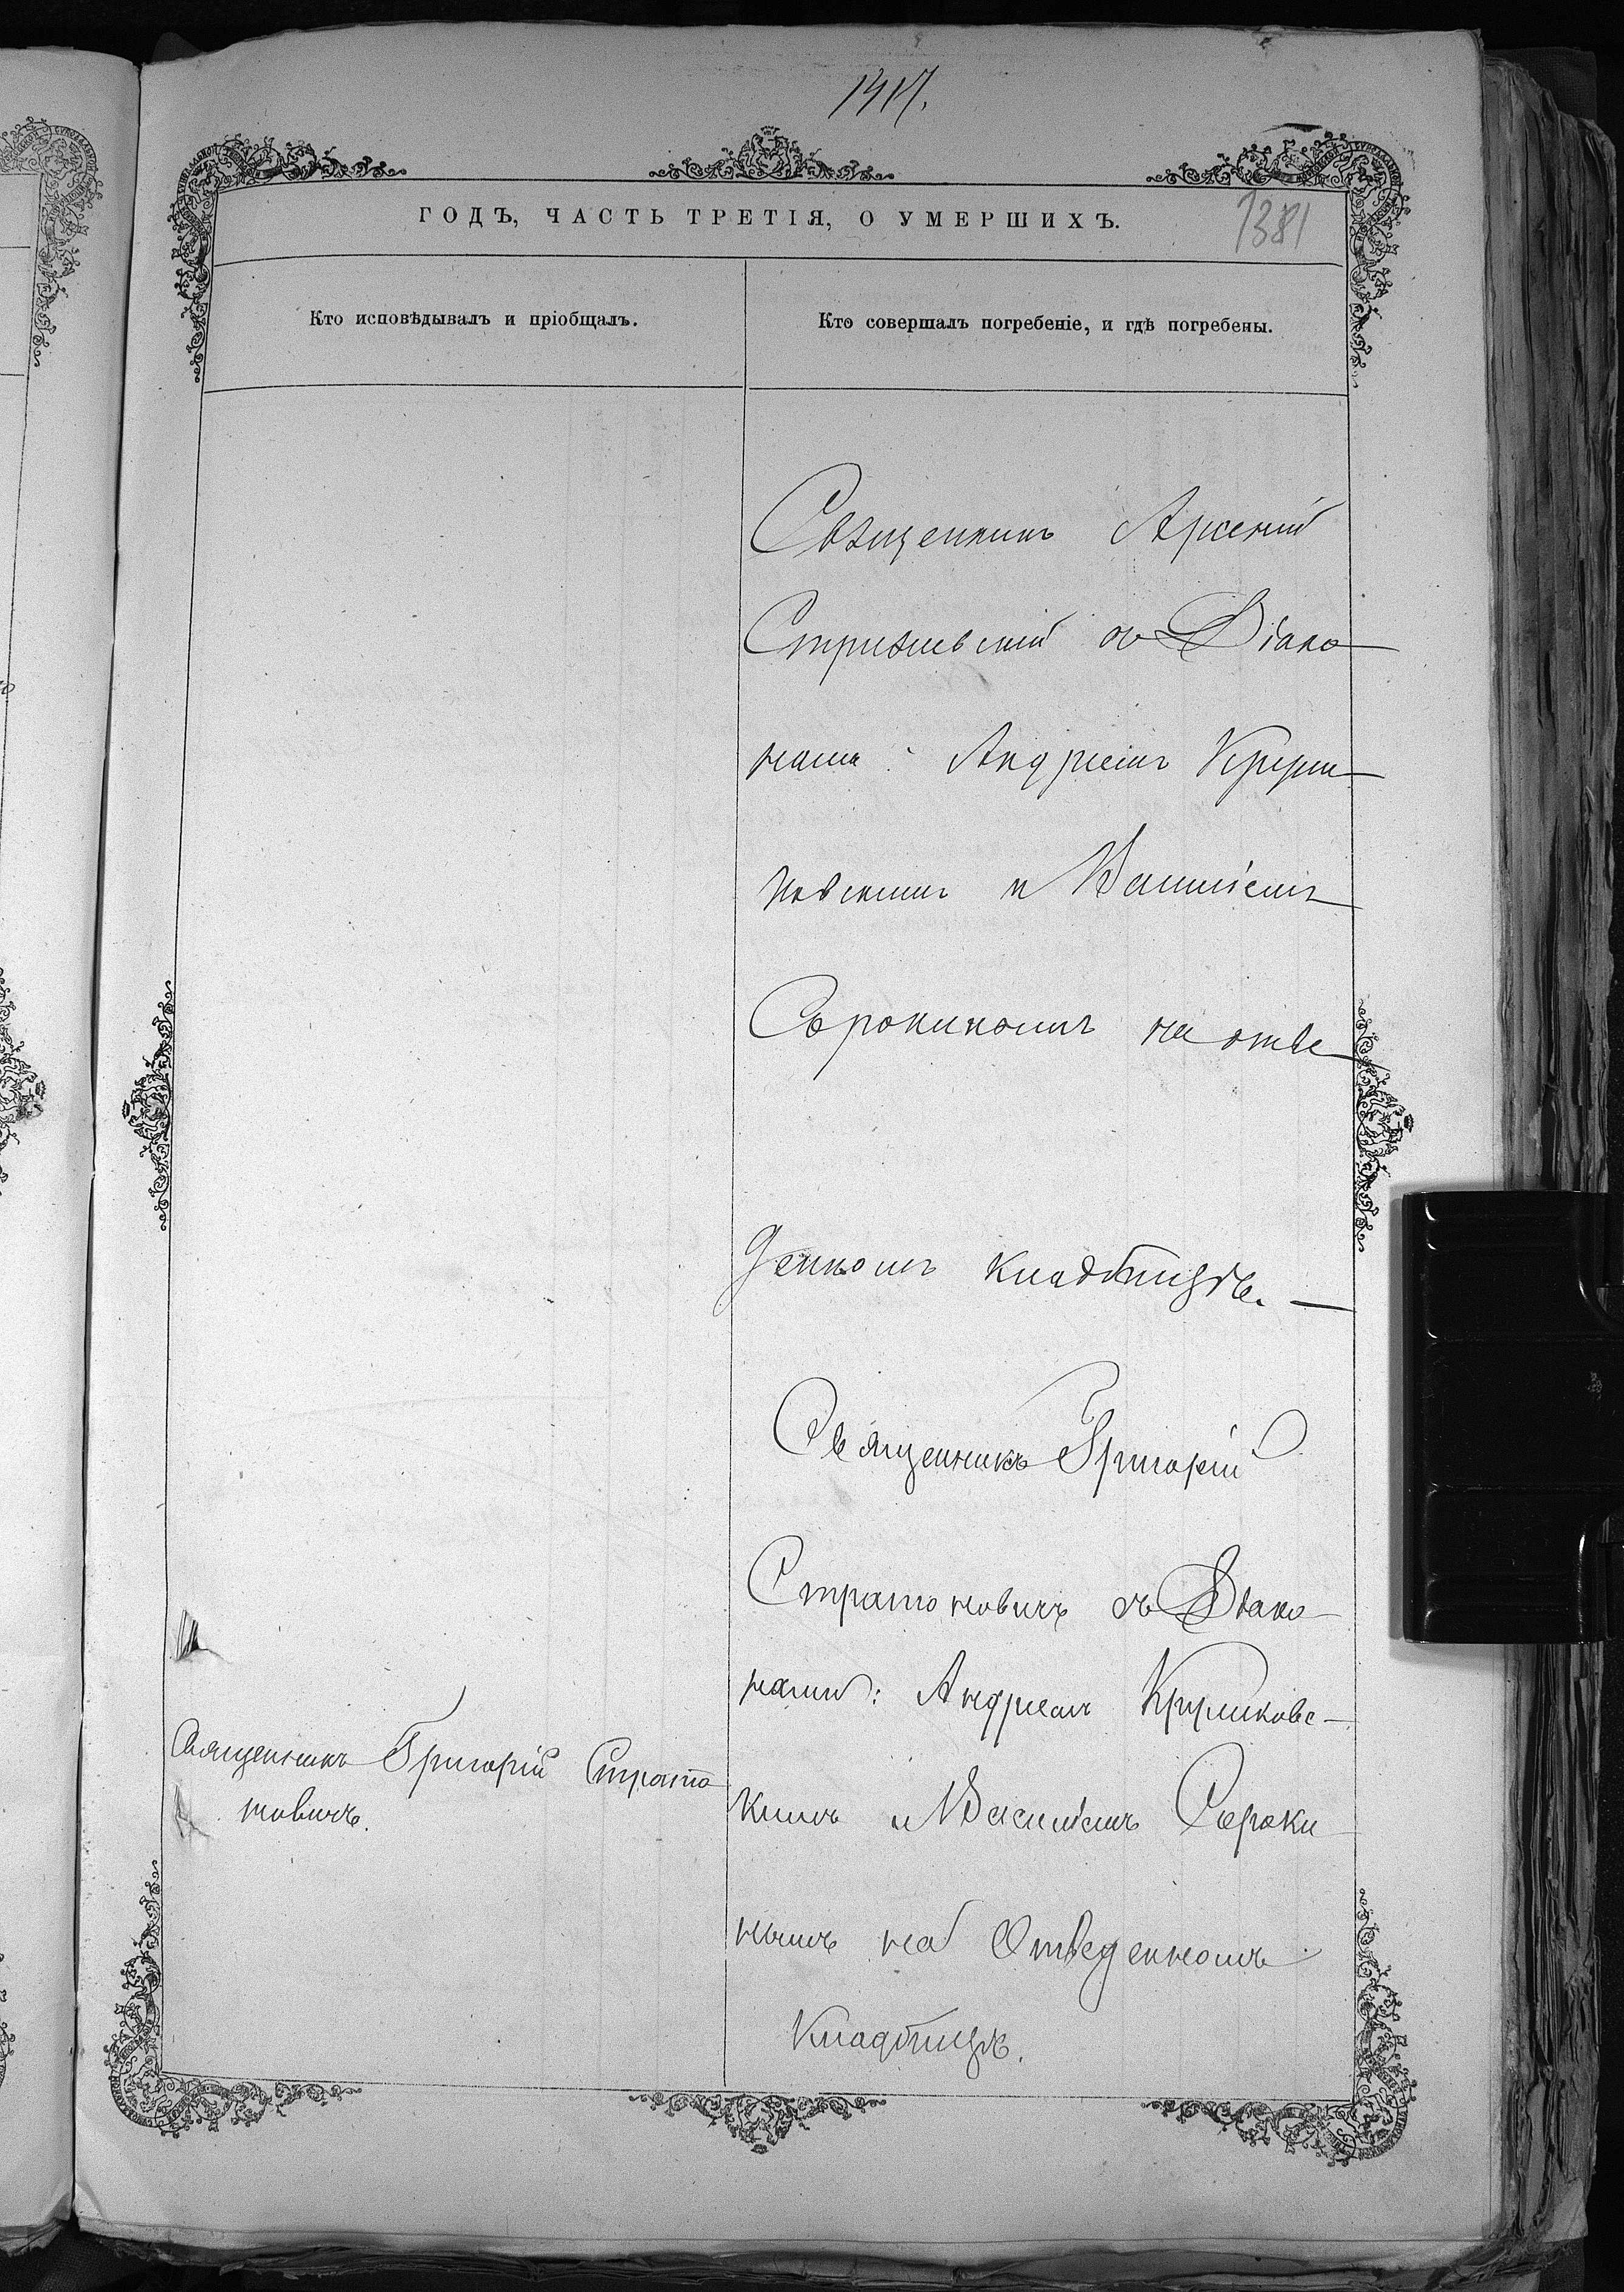 1417.
ГОДЪ, ЧАСТЬ ТРЕТІЯ, О УМЕРШИХЪ.
1381
Кто исповѣдывалъ и пріобщалъ.
Кто совершалъ погребеніе, и гдѣ погребены.
Священникъ Арсеній
Стрижевскій съ Діако
нами: Андреемъ Крули
ковскимъ и Василіемъ
Сорокинымъ на отве
денномъ кладбищѣ.
Священникъ Григорій
Стратоновичъ съ Діако
нами: Андреемъ Круликовс
кимъ и Василіемъ Сороки
нымъ на Отведенномъ
Кладбищѣ.
Священникъ Григорій Страто
новичъ.